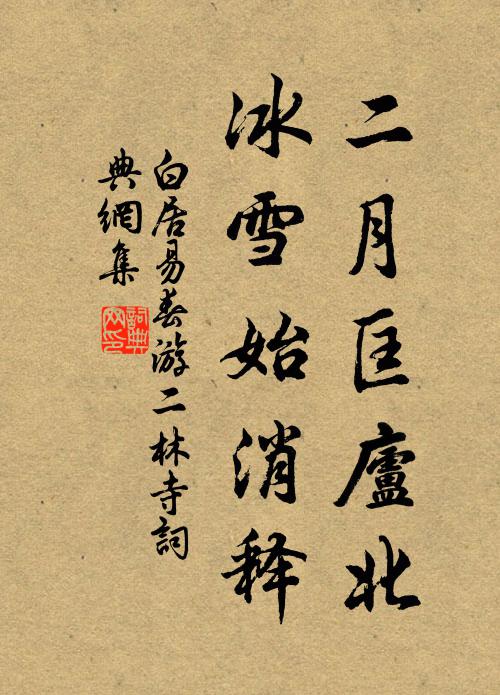 二月匡廬北
冰雪始消释
白居易春游二林寺詞
典網集
詞典
网印